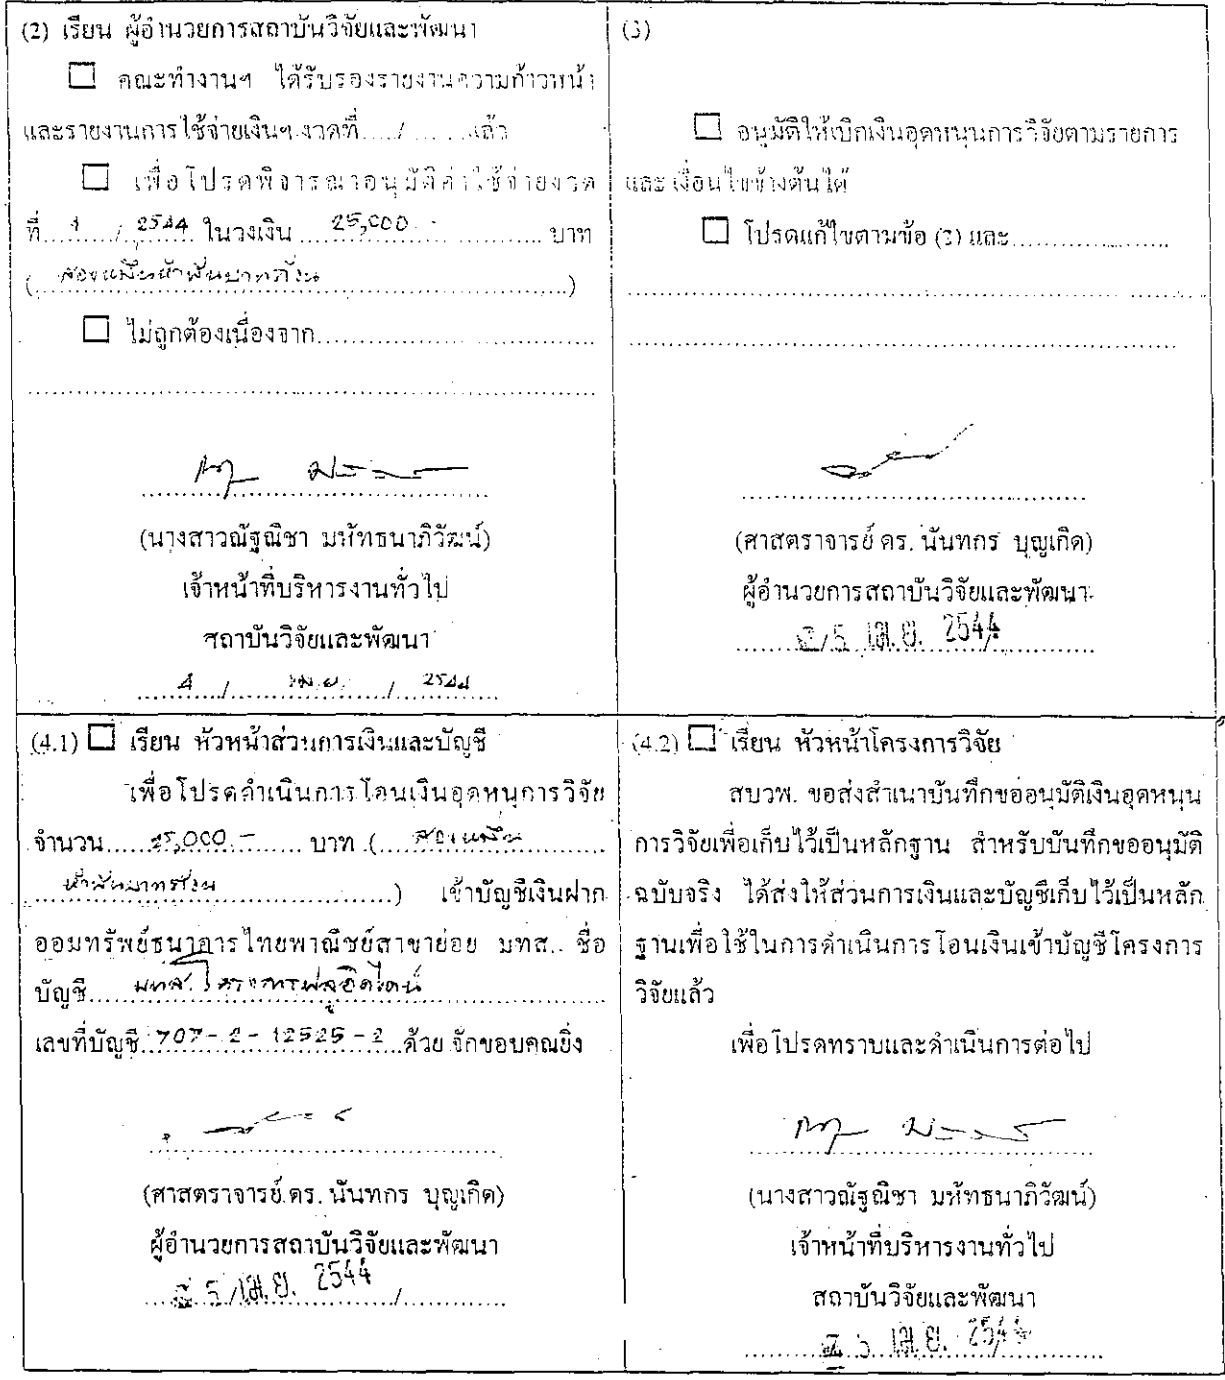 (2) เรียน ผู้อำนวยการสถาบันวิจัยและพัฒนา
☐ คณะทำงานฯ ได้รับรองรายงานความก้าวหน้า
และรายงานการใช้จ่ายเงินฯ งวดที่...../.........แล้ว
☐ เพื่อโปรดพิจารณาอนุมัติค่าใช้จ่ายงวด
ที่ 1 / 2544 ในวงเงิน 25,000 บาท
(สองหมื่นห้าพันบาทถ้วน)
☐ ไม่ถูกต้องเนื่องจาก
(นางสาวณัฐณิชา มหัทธนาภิวัฒน์)
เจ้าหน้าที่บริหารงานทั่วไป
สถาบันวิจัยและพัฒนา
4 / เม.ย. / 2544
(3)
☐ อนุมัติให้เบิกเงินอุดหนุนการวิจัยตามรายการ
และเงื่อนไขข้างต้นได้
☐ โปรดแก้ไขตามข้อ (2) และ
(ศาสตราจารย์ ดร. นันทกร บุญเกิด)
ผู้อำนวยการสถาบันวิจัยและพัฒนา
5 เม.ย. 2544
(4.1) ☐ เรียน หัวหน้าส่วนการเงินและบัญชี
เพื่อโปรดดำเนินการโอนเงินอุดหนุการวิจัย
จำนวน 25,000.- บาท (สองหมื่น
ห้าพันบาทถ้วน) เข้าบัญชีเงินฝาก
ออมทรัพย์ธนาคารไทยพาณิชย์สาขาย่อย มทส. ชื่อ
บัญชี มทส. โครงการฟลูอิดไดน์
เลขที่บัญชี 707-2-12525-2 ด้วย จักขอบคุณยิ่ง
(ศาสตราจารย์ ดร. นันทกร บุญเกิด)
ผู้อำนวยการสถาบันวิจัยและพัฒนา
5 เม.ย. 2544
(4.2) ☐ เรียน หัวหน้าโครงการวิจัย
สบวพ. ขอส่งสำเนาบันทึกขออนุมัติเงินอุดหนุน
การวิจัยเพื่อเก็บไว้เป็นหลักฐาน สำหรับบันทึกขออนุมัติ
ฉบับจริง ได้ส่งให้ส่วนการเงินและบัญชีเก็บไว้เป็นหลัก
ฐานเพื่อใช้ในการดำเนินการโอนเงินเข้าบัญชีโครงการ
วิจัยแล้ว
เพื่อโปรดทราบและดำเนินการต่อไป
(นางสาวณัฐณิชา มหัทธนาภิวัฒน์)
เจ้าหน้าที่บริหารงานทั่วไป
สถาบันวิจัยและพัฒนา
เม.ย. 2544